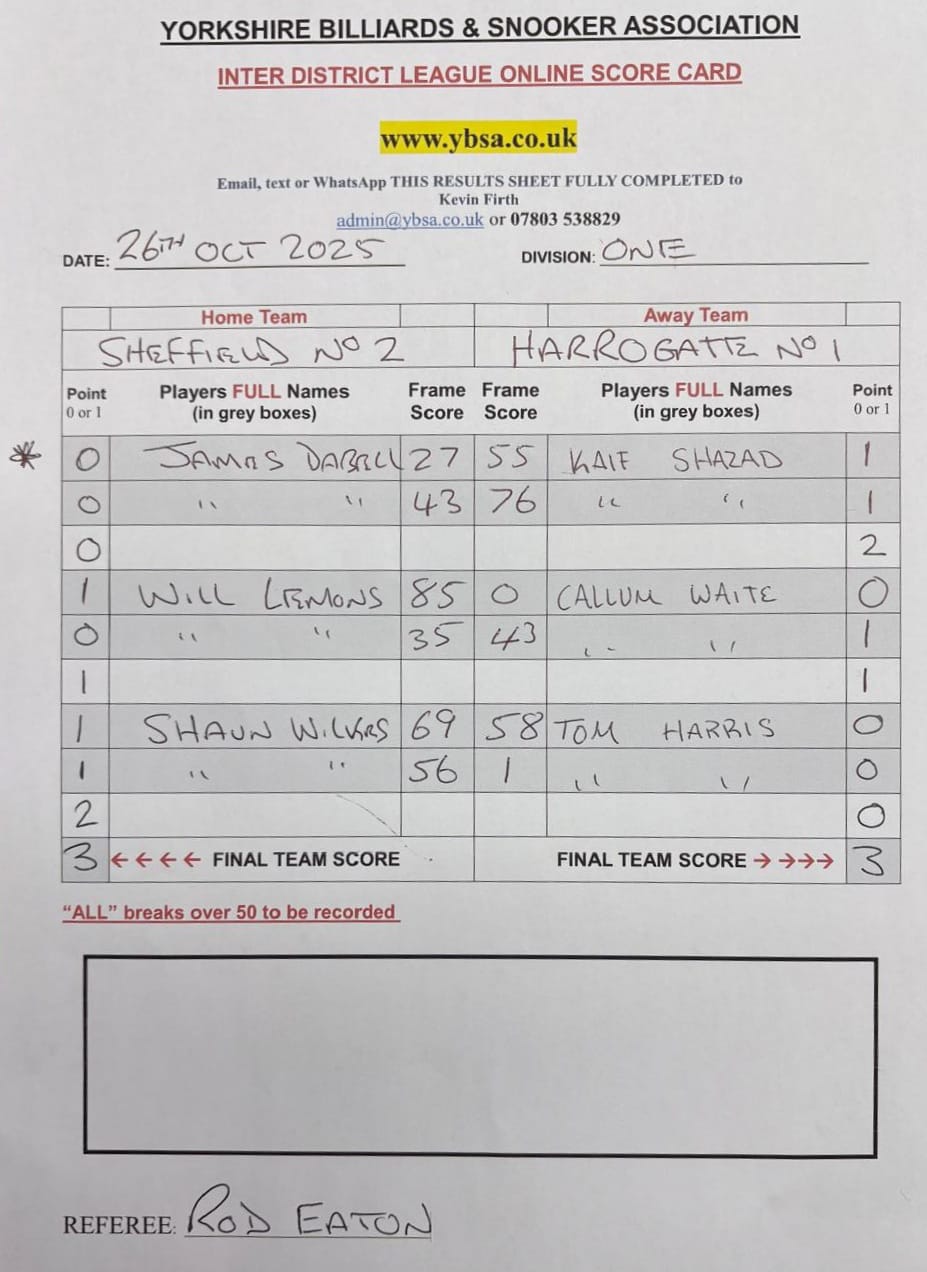 YORKSHIRE BILLIARDS & SNOOKER ASSOCIATION
INTER DISTRICT LEAGUE ONLINE SCORE CARD
www.ybsa.co.uk
Email, text or WhatsApp THIS RESULTS SHEET FULLY COMPLETED to
Kevin Firth
admin@ybsa.co.uk or 07803 538829
DATE: 26TH OCT 2025 DIVISION: ONE
Home Team Away Team
SHEFFIELD No 2 HARROGATE No 1
Point Players FULL Names Frame Frame Players FULL Names Point
0 or 1 (in grey boxes) Score Score (in grey boxes) 0 or 1
* 0 JAMES 27 55 KAIF SHAZAD 1
0 " " 43 76 " " 1
0 2
1 WILL LEMONS 85 0 CALLUM WAITE 0
0 " " 35 43 " " 1
1 1
1 SHAUN WILKES 69 58 TOM HARRIS 0
1 " " 56 1 " " 0
2 0
3 ←←←← FINAL TEAM SCORE FINAL TEAM SCORE →→→→ 3
“ALL” breaks over 50 to be recorded
REFEREE: ROD EATON